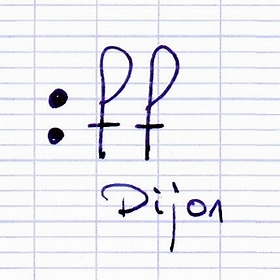 :ff
Dijon